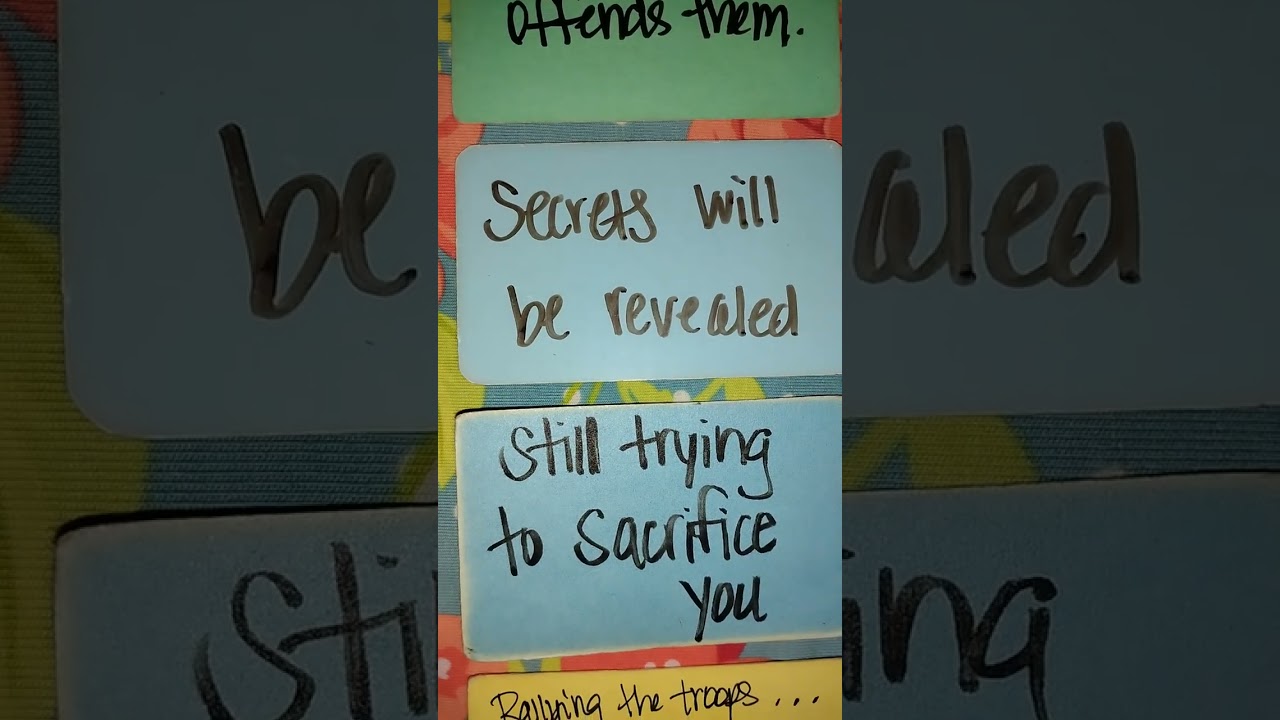 offends them.
Secrets will
be revealed
Still trying
to sacrifice
you
Rallying the troops ...